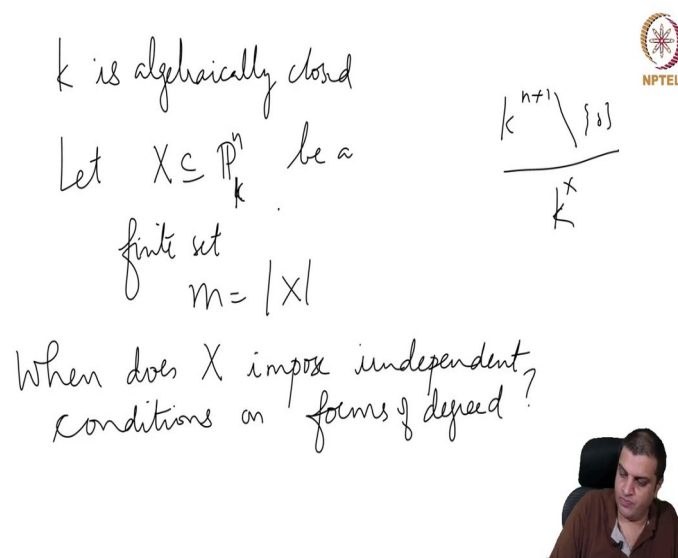 k is algebraically closed
Let X ⊆ ℙⁿₖ be a
finite set
m = |X|
When does X impose independent
conditions on forms of degree d?
kⁿ⁺¹ \ {0}
kˣ
NPTEL